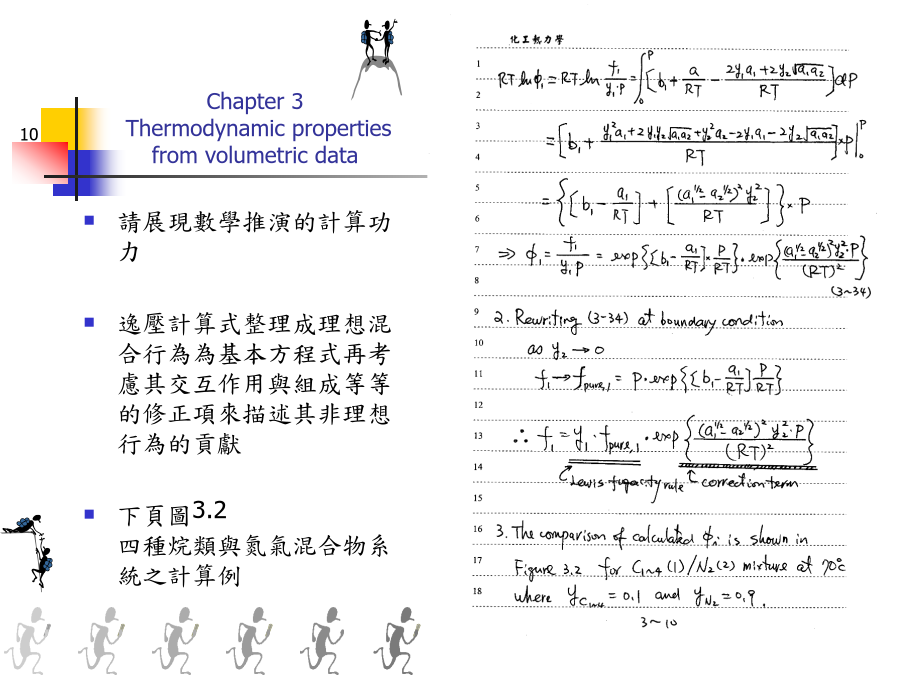 10
Chapter 3
Thermodynamic properties
from volumetric data
請展現數學推演的計算功
力
逸壓計算式整理成理想混
合行為為基本方程式再考
慮其交互作用與組成等等
的修正項來描述其非理想
行為的貢獻
下頁圖3.2
四種烷類與氮氣混合物系
統之計算例
化工熱力學
1
RT ln ϕ₁ = RT ln f₁/(y₁·P) = ∫₀ᴾ [b₁ + a/RT - (2y₁a₁ + 2y₂√(a₁a₂))/RT] dP
2
3
= [b₁ + (y₁²a₁ + 2y₁y₂√(a₁a₂) + y₂²a₂ - 2y₁a₁ - 2y₂√(a₁a₂))/RT] × P |₀ᴾ
4
5
= {[b₁ - a₁/RT] + [(a₁^1/2 - a₂^1/2)² y₂²/RT]} × P
6
7
⇒ ϕ₁ = f₁/(y₁P) = exp{[b₁ - a₁/RT] × P/RT} · exp{(a₁^1/2 - a₂^1/2)² y₂²·P/(RT)²}
8
(3~34)
9 2. Rewriting (3-34) at boundary condition
10 as y₂ → 0
11 f₁ → f pure,1 = P · exp{[b₁ - a₁/RT] P/RT}
12
13 ∴ f₁ = y₁ · f pure,1 · exp{(a₁^1/2 - a₂^1/2)² y₂²·P/(RT)²}
14
Lewis fugacity rule correction term
15
16 3. The comparison of calculated ϕᵢ is shown in
17 Figure 3.2 for C₁~₄ (1) / N₂ (2) mixture at 70°C
18 where y C₁~₄ = 0.1 and y N₂ = 0.9.
3~10